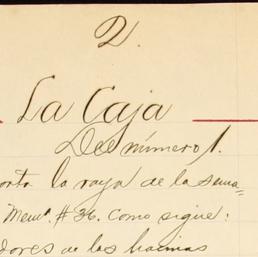 2.
La Caja
Del número 1.
la raya de la sema=
Memª. #36. como sigue:
dores de las haciendas